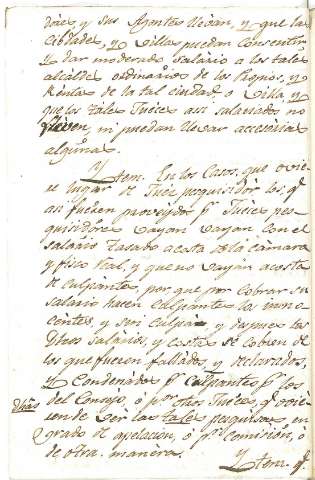 dores, y sus Agentes llevan, y que las
Cibdades, y Villas puedan Consentir
y dar moderado salario a los tales
alcaldes ordinarios de los Propios, y
Rentas de la tal ciudad o Villa y
que los tales Jueces asi salariados no
lleven, ni puedan llevar accesorias
algunas.
Ytem. En los Casos, que ovie
re lugar de Juez pesquisidor los q.e
asi fueren proveydos p.r Jueces pes
quisidores vayan vayan con el
salario tasado a costa de la camara
y fisco Real, y que no vayan a costa
de culpantes, por que por cobrar su
salario hacen Culpantes la inno
centes, y sin culpa, y despues los
Dhos Salarios, y costas se cobren de
los que fueron fallados, y declarados,
y Condenados p.r Culpantes p.r los
del Consejo, o p.r otros Jueces, q.e ovie
Dhas
ren de ver las tales pesquisas en
grado de apelacion, ó p.r Comision, ó
de otra manera.
Ytem. q.e